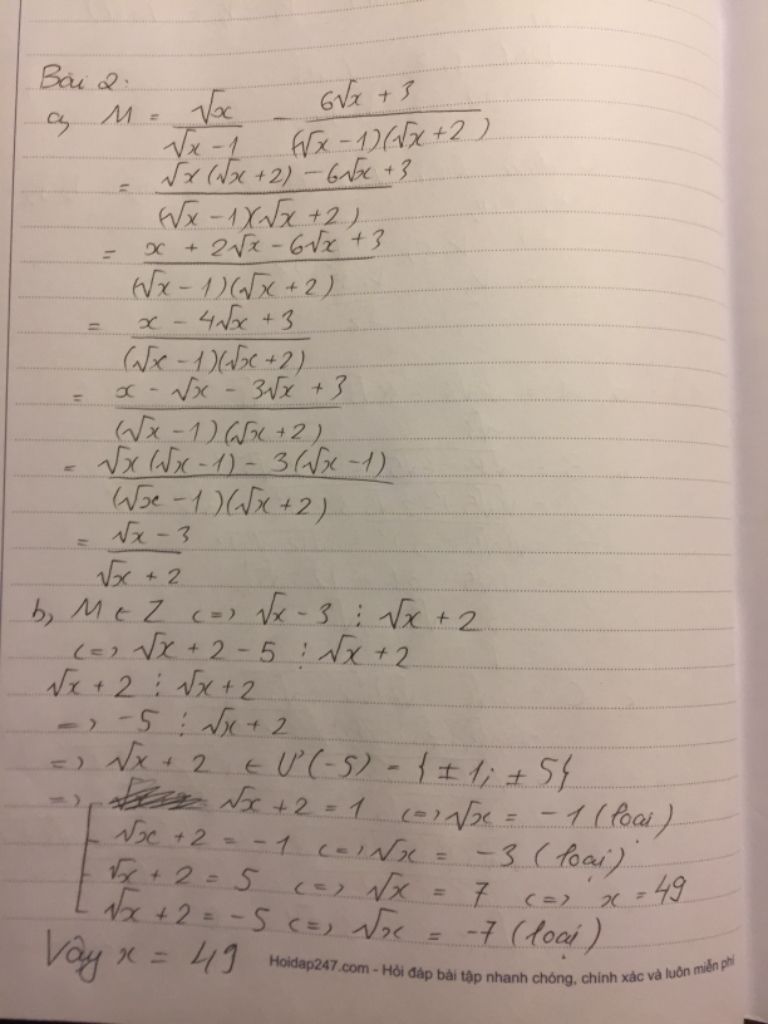 Bài 2:
a, M = √x / (√x - 1) - (6√x + 3) / ((√x - 1)(√x + 2))
= (√x(√x + 2) - 6√x + 3) / ((√x - 1)(√x + 2))
= (x + 2√x - 6√x + 3) / ((√x - 1)(√x + 2))
= (x - 4√x + 3) / ((√x - 1)(√x + 2))
= (x - √x - 3√x + 3) / ((√x - 1)(√x + 2))
= (√x(√x - 1) - 3(√x - 1)) / ((√x - 1)(√x + 2))
= (√x - 3) / (√x + 2)
b, M ∈ Z <=> √x - 3 ⋮ √x + 2
<=> √x + 2 - 5 ⋮ √x + 2
√x + 2 ⋮ √x + 2
=> -5 ⋮ √x + 2
=> √x + 2 ∈ Ư(-5) = {±1; ±5}
=> [ √x + 2 = 1 <=> √x = -1 (loại)
√x + 2 = -1 <=> √x = -3 (loại)
√x + 2 = 5 <=> √x = 7 <=> x = 49
√x + 2 = -5 <=> √x = -7 (loại)
Vậy x = 49
Hoidap247.com - Hỏi đáp bài tập nhanh chóng, chính xác và luôn miễn phí